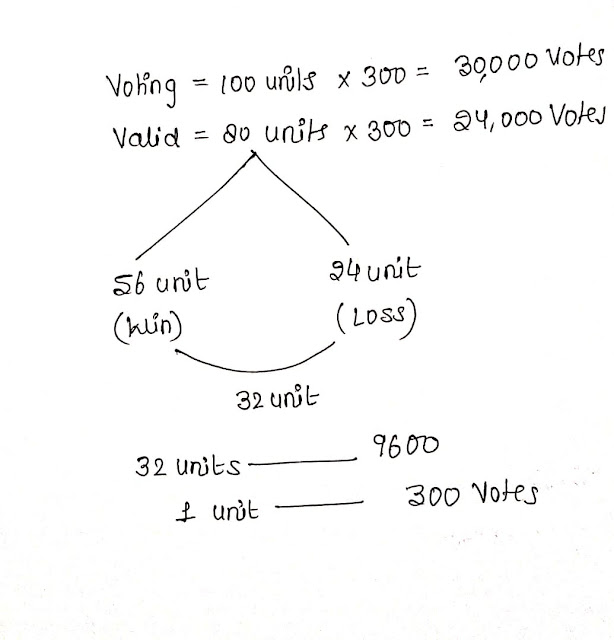 Voting = 100 units x 300 = 30,000 Votes
Valid = 80 units x 300 = 24,000 Votes
56 unit 24 unit
(Win) (Loss)
32 unit
32 units 9600
1 unit 300 Votes